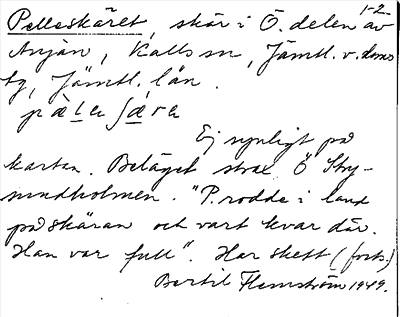 1-2
Pelleskäret, skär i Ö. delen av
Anjan, Kalls sn, Jämtl. v. doms
sg, Jämtl. län.
pàla ʃæra
Ej synligt på
kartan. Beläget strax Ö Stry-
sundholmen. "P. rodde i land
på skäran och vart kvar där.
Han var full". Har skett (forts.)
Bertil Flemström 1949.